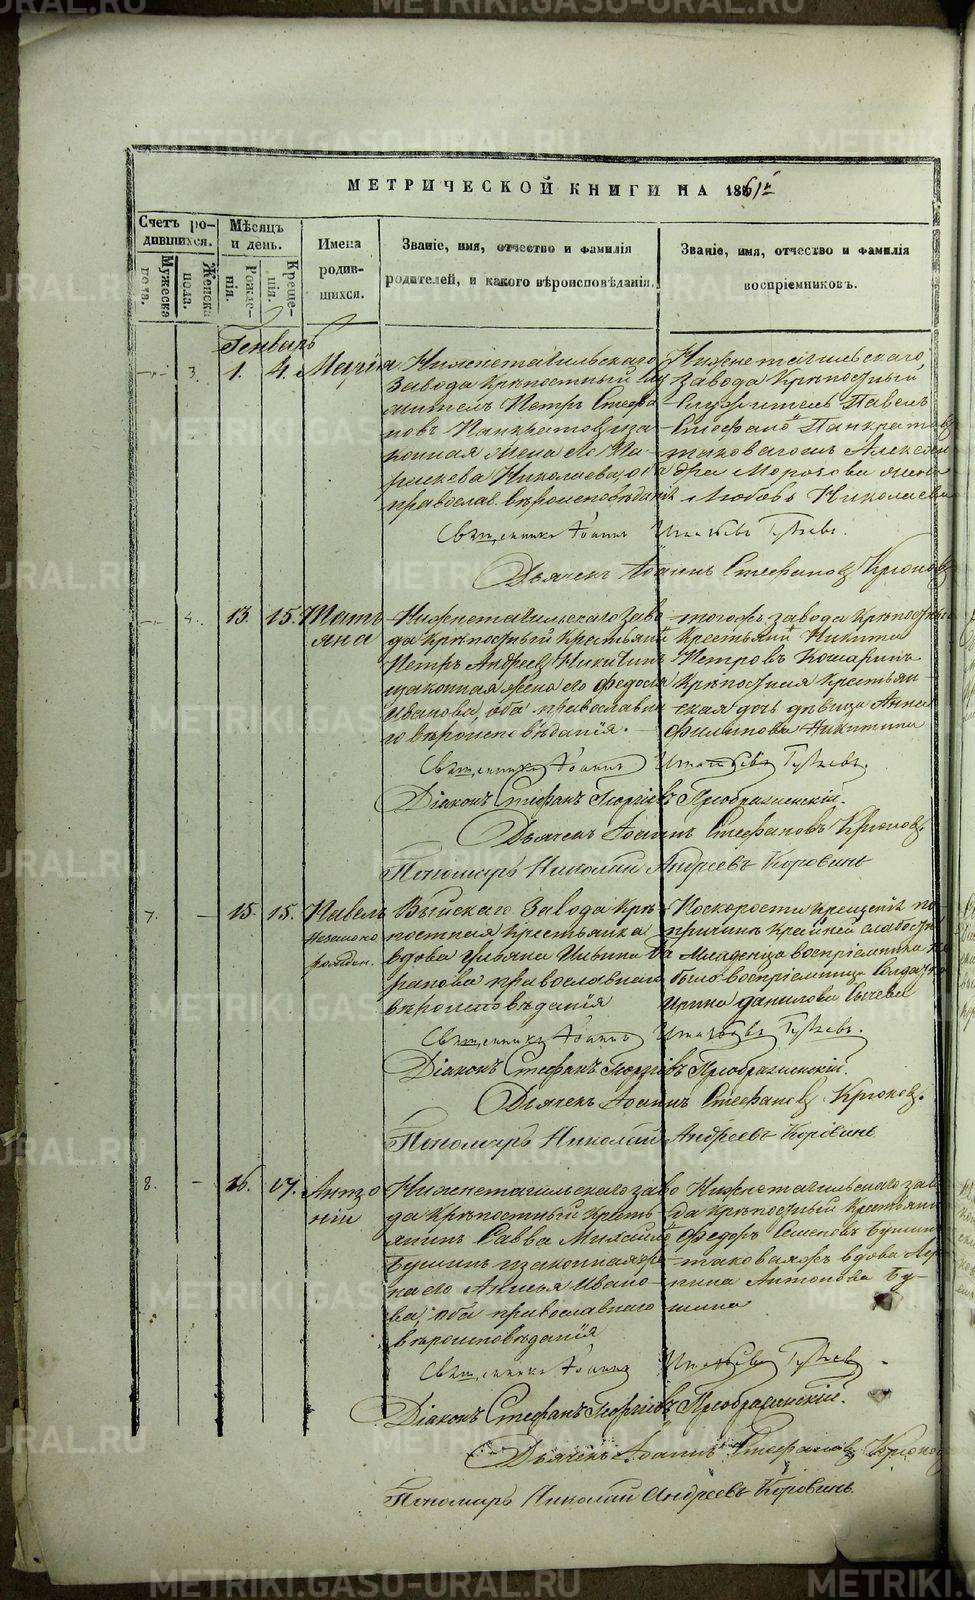 МЕТРИЧЕСКОЙ КНИГИ НА 1861 г
Счетъ ро-
дившихся.
Мужеска
пола.
Женска
пола.
Мѣсяцъ
и день.
Рожде-
нія.
Креще-
нія.
Имена
родив-
шихся.
Званіе, имя, отчество и фамилія
родителей, и какого вѣроисповѣданія.
Званіе, имя, отчество и фамилія
воспріемниковъ.
Генварь
3. 1. 4. Марія
Нижнетагильскаго
завода крѣпостный слу
житель Петръ Стефа
новъ Панкратовъ и за
конная жена его Па-
раскева Николаева, оба
православ. вѣроисповѣданія
Нижнетагильскаго
завода крѣпостный
служитель Павелъ
Стефановъ Панкратовъ
Морозова жена
Любовь Николаева
Священникъ Іоаннъ
Дьячекъ Іоаннъ Стефановъ Крюковъ
4. 13. 15. Тать
яна
Нижнетагильскаго заво
да крѣпостный крестьянинъ
Петръ Андреевъ Никитинъ
и законная жена его Федосья
Иванова, оба православна
го вѣроисповѣданія.
тогожъ завода крѣпостный
крестьянинъ Никита
Петровъ Кошаринъ
крѣпостная крестьян-
ская дочь дѣвица Анна
Филипова Никитина
Священникъ Іоаннъ
Діаконъ Стефанъ Георгіевъ Преображенскій.
Дьячекъ Іоаннъ Стефановъ Крюковъ.
Пономарь Николай Андреевъ Коровинъ
7. 15. 15. Павелъ
незаконо
рожден.
Выйскаго завода крѣ
постная крестьянка
вдова Ульяна
православнаго
вѣроисповѣданія
По скорости крещенія по
причинѣ крайней слабости
младенца воспріемника не
было воспріемница солдатка
Ирина Данилова Сычева
Священникъ Іоаннъ
Діаконъ Стефанъ Георгіевъ Преображенскій.
Дьячекъ Іоаннъ Стефановъ Крюковъ.
Пономарь Николай Андреевъ Коровинъ
8. 16. 17. Анто
ній
Нижнетагильскаго заво
да крѣпостный кресть
янинъ Савва Михайловъ
Бушинъ и законная же
на его Анисья Ивано-
ва, оба православнаго
вѣроисповѣданія
Нижнетагильскаго заво
да крѣпостный крестьянинъ
Федоръ Семеновъ Бушинъ
таковаяжъ вдова
Антонова Бу-
шина
Священникъ Іоаннъ
Діаконъ Стефанъ Георгіевъ Преображенскій.
Дьячекъ Іоаннъ Стефановъ Крюковъ
Пономарь Николай Андреевъ Коровинъ
METRIKI.GASO-URAL.RU